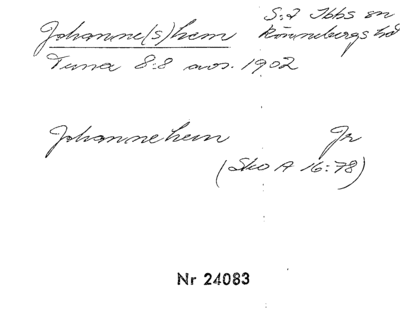 Johanne(s)hem S:t Ibbs sn
Tuna 8:8 avs. 1902 Rönnebergs hd
Johannehem Jr
(Sko A 16:78)
Nr 24083